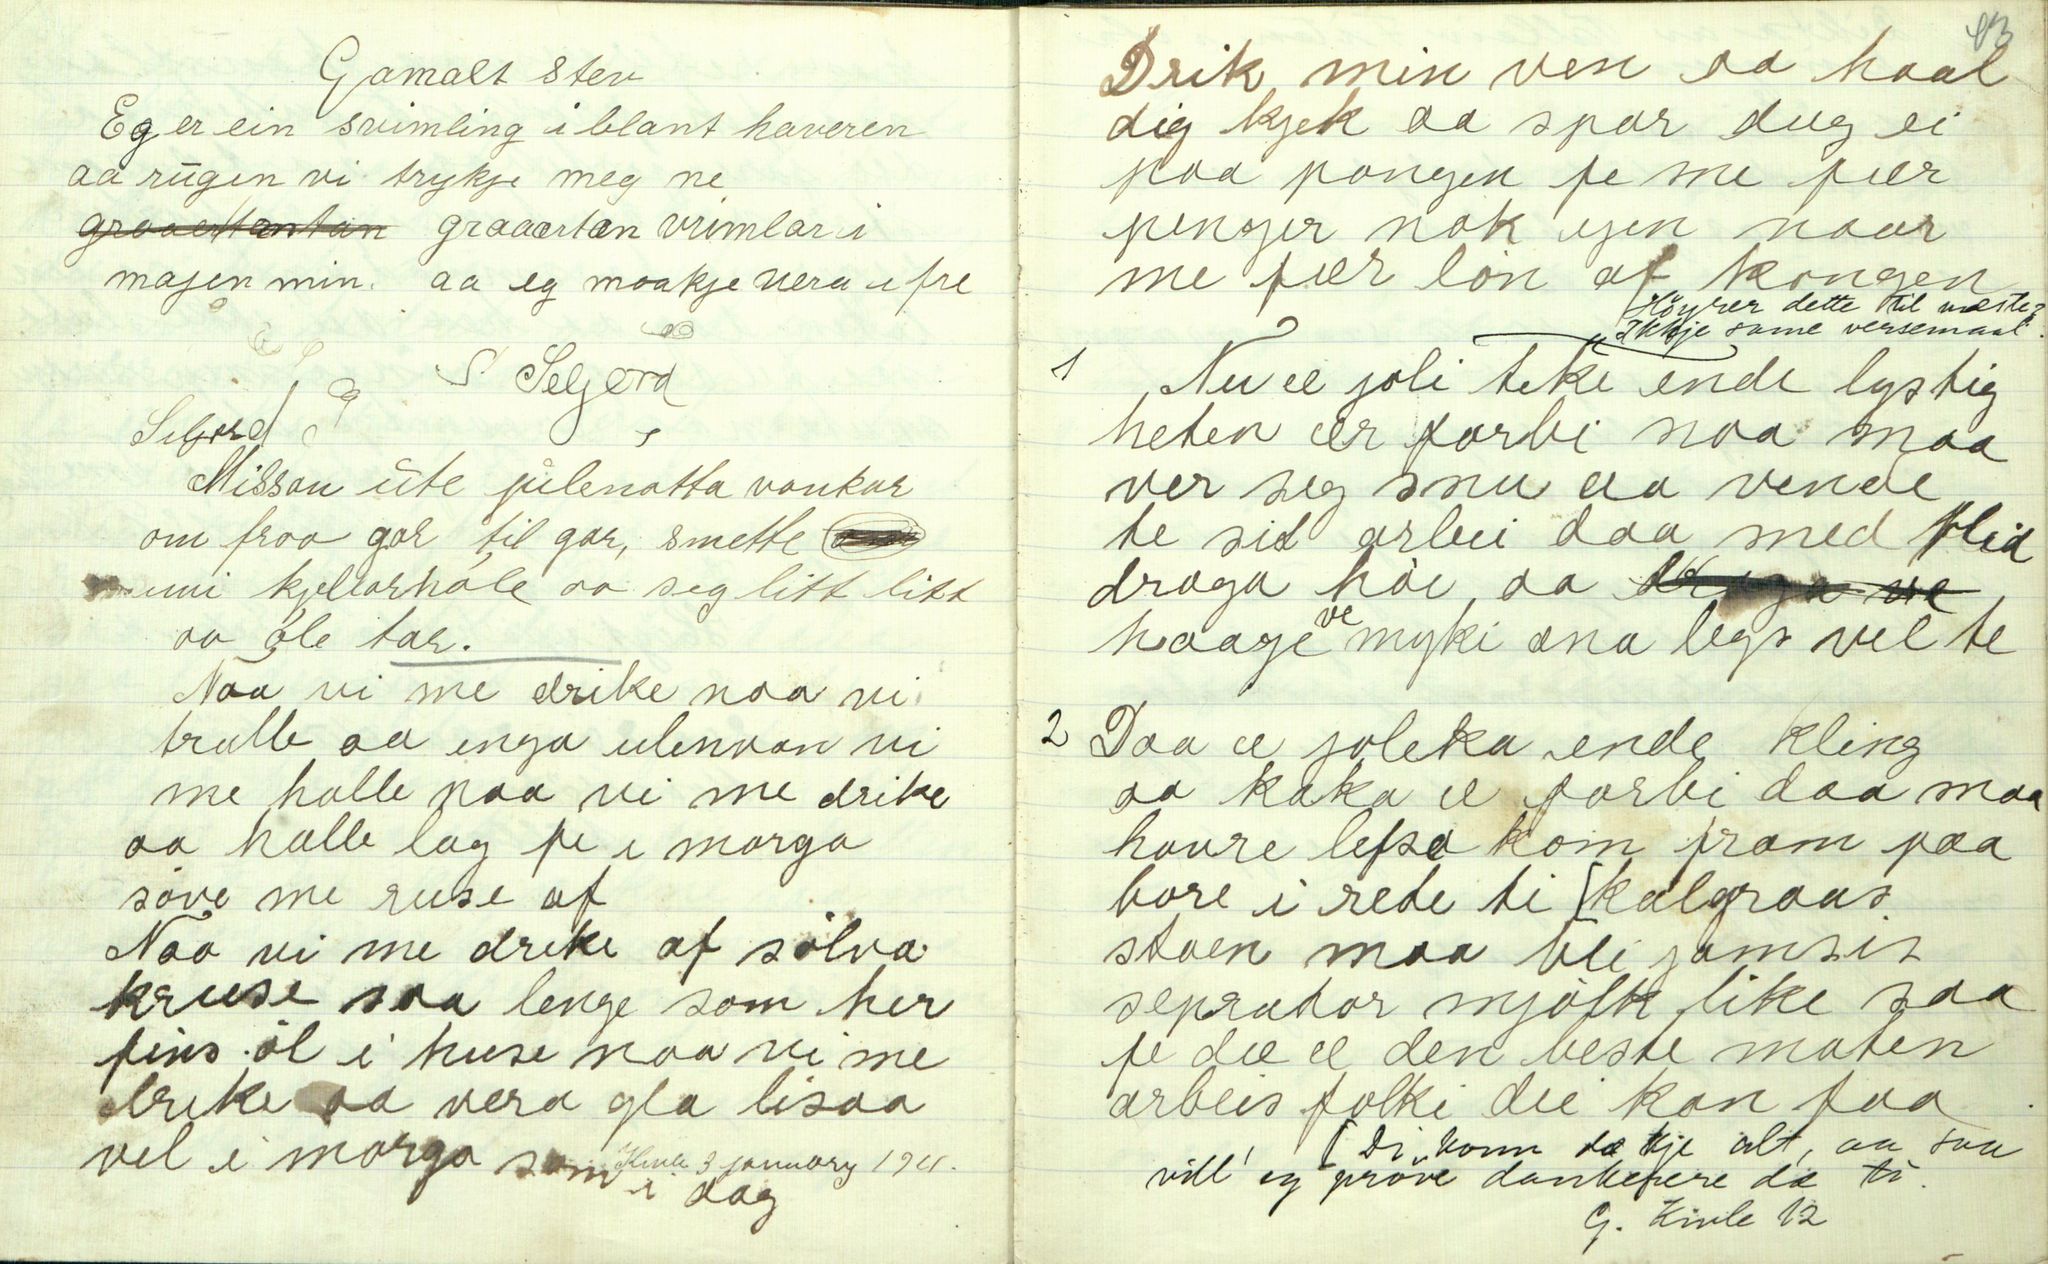 Gamalt Stev
Eg er ein svimling i blant haveren
aa rugen vi trykje meg ne
graaertantan graaertan vrimlar i
majen min. aa eg maakje vera i fre
S Seljord
Seljord
Nissan ute julenatta vankar
om fraa gar til gar, smette
uni kjellarhole aa seg litt litt
aa öle tar.
Naa vi me drike naa vi
tralle aa inga ulenvan vi
me halle naa vi me drike
aa halle lag fe i morga
söve me ruse af
Naa vi me drike af sölva
kruse saa lenge som her
fins öl i huse naa vi me
drike aa vera gla lisaa
vel i morga som
i dag
Kivle 3 january 1911.
93
Drik min ven aa haal
dig kjek aa spar dug ei
paa pongen fe me fær
penger nok igen naar
me fær lön af kongen
Höyrer dette til næste?
Ikkje same versemaal.
1 Nu æ joli teke ende lystig
heten ær forbi naa maa
ver seg snu aa vende
te sit arbei daa med flid
draga höi aa draga ve
haage ve myki ana legs vel te
2 Daa æ joleka ende kling
aa kaka æ forbi daa maa
havre lefsa kom fram paa
bore i rede ti [kalgraas
staen maa bli jamsis
seprator mjölk like saa
fe dæ æ den beste maten
arbeis folki dei kan faa
[Di konn dæ kje alt, aa saa
vill' eg pröve dankefere dæ ti.
G. Kivle 12